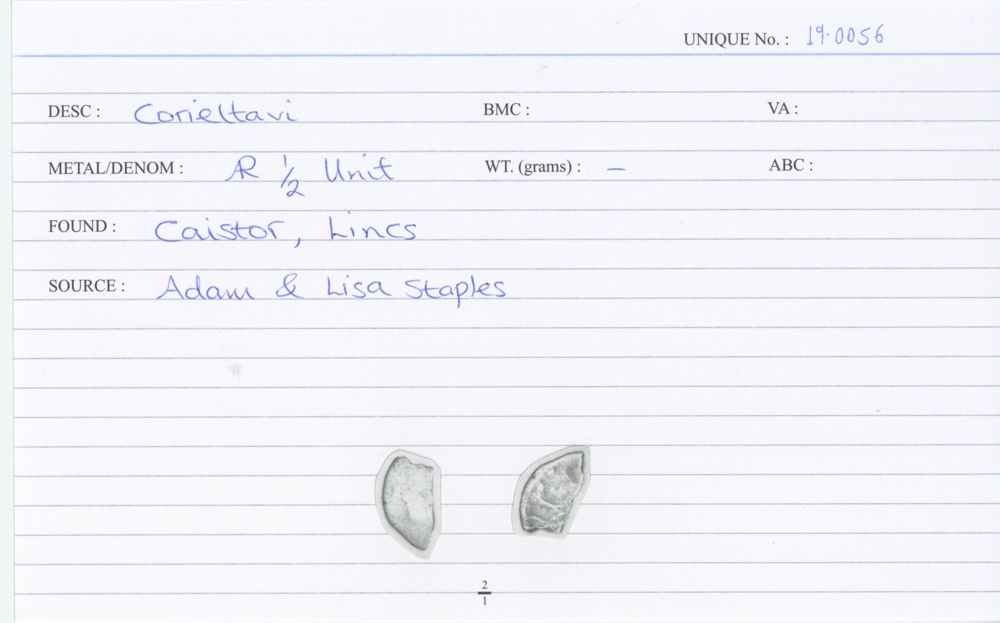 UNIQUE No. : 19.0056
DESC : Corieltavi BMC : VA :
METAL/DENOM : AR 1/2 Unit WT. (grams) : – ABC :
FOUND : Caistor, Lincs
SOURCE : Adam & Lisa Staples
2
1